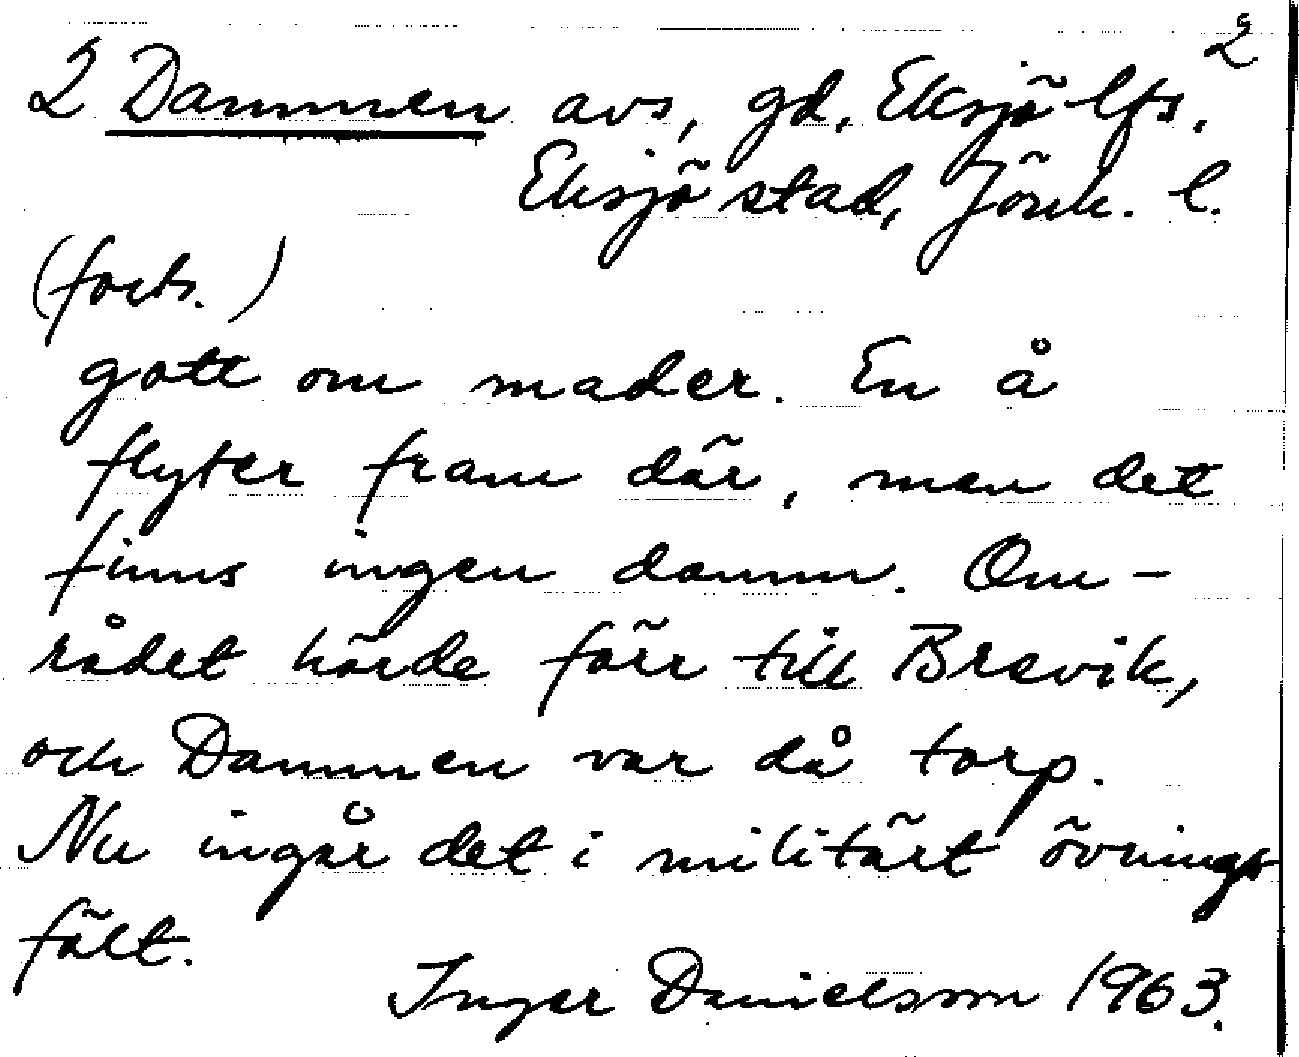 2
2 Dammen avs, gd, Eksjö lfs.
Eksjö stad, Jönk. l.
(forts.)
gott om mader. En å
flyter fram där, men det
finns ingen damm. Om-
rådet hörde förr till Brevik,
och Dammen var då torp.
Nu ingår det i militärt övnings
fält.
Inger Danielsson 1963.